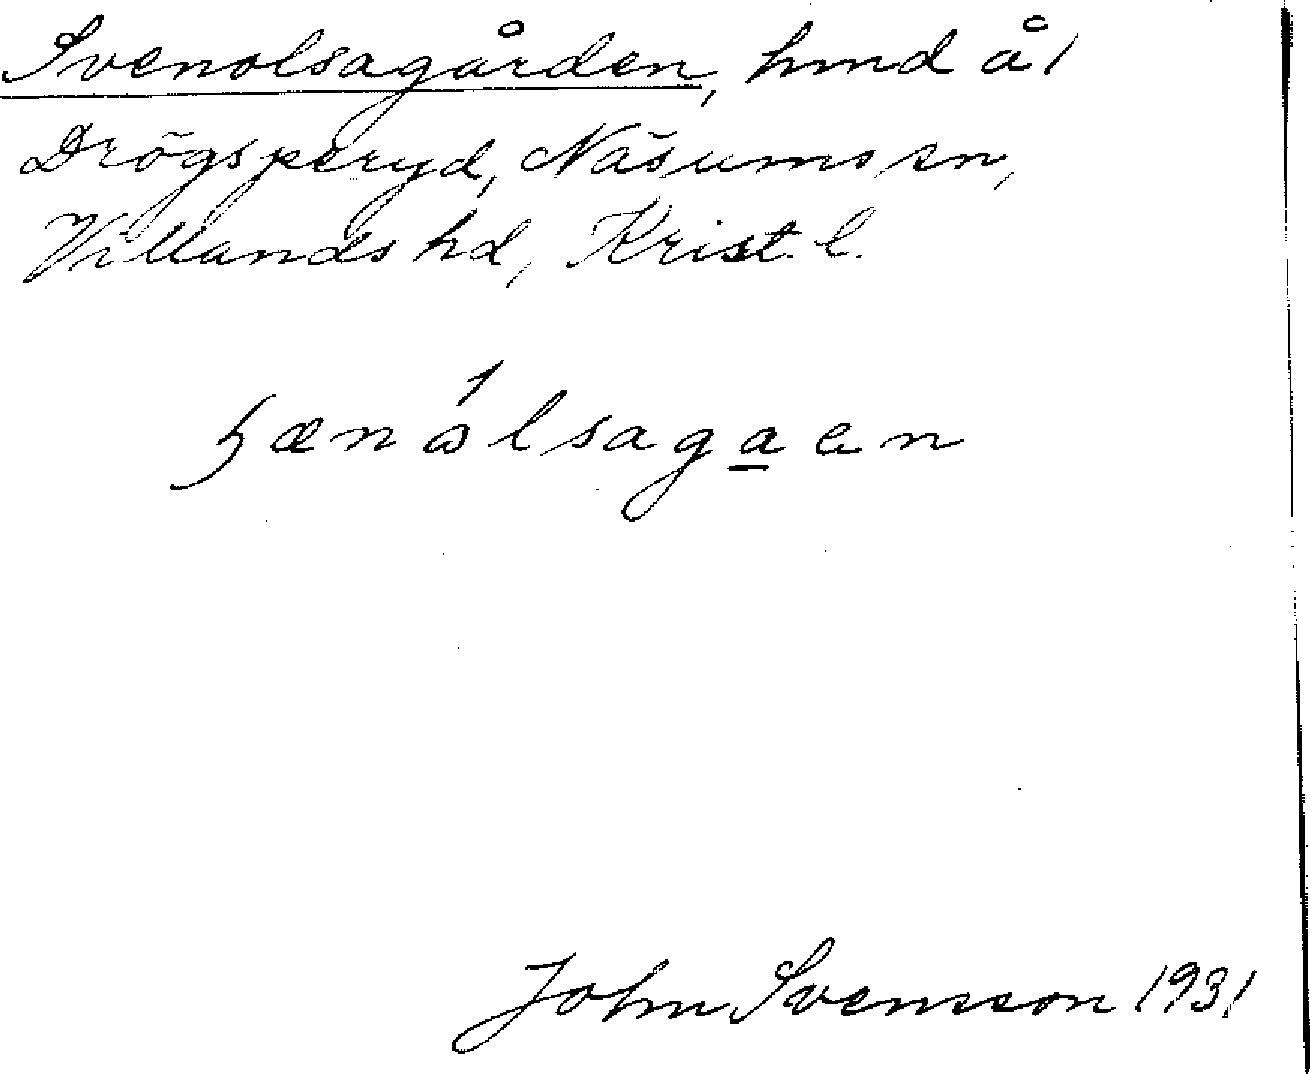 Svenolsagården, hmd å 1
Drögsperyd, Näsums sn,
Villands hd, Krist. l.
John Svensson 1931